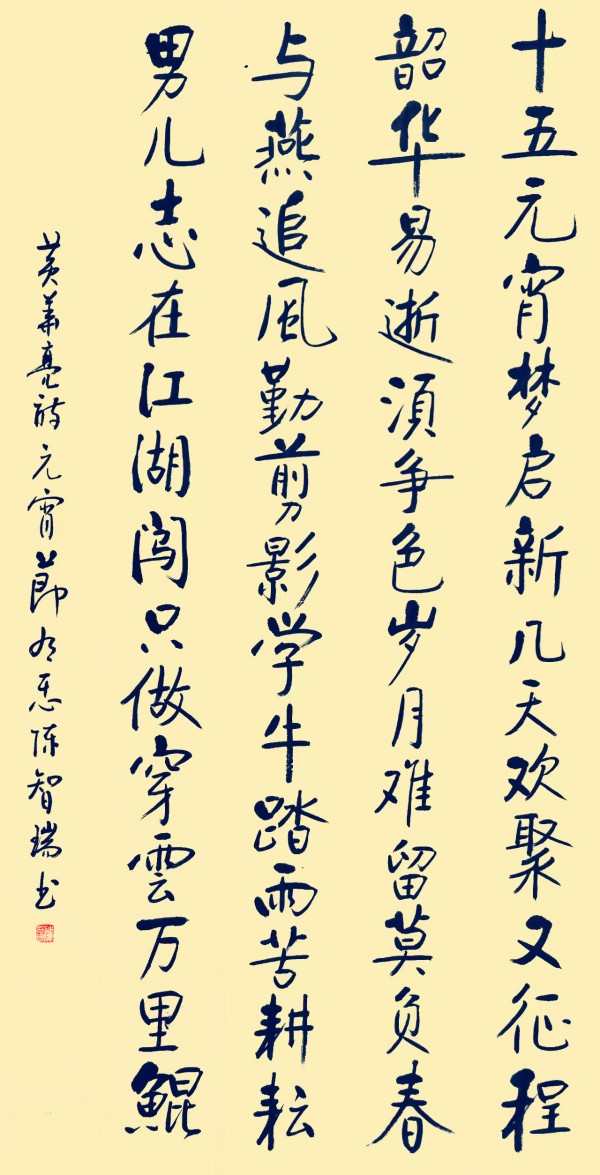 十五元宵梦启新几天欢聚又征程
韶华易逝須争色岁月难留莫负春
与燕追風勤剪影学牛踏雨苦耕耘
男儿志在江湖闯只做穿雲万里鲲
黄華亮诗元宵節有感陈智瑞书